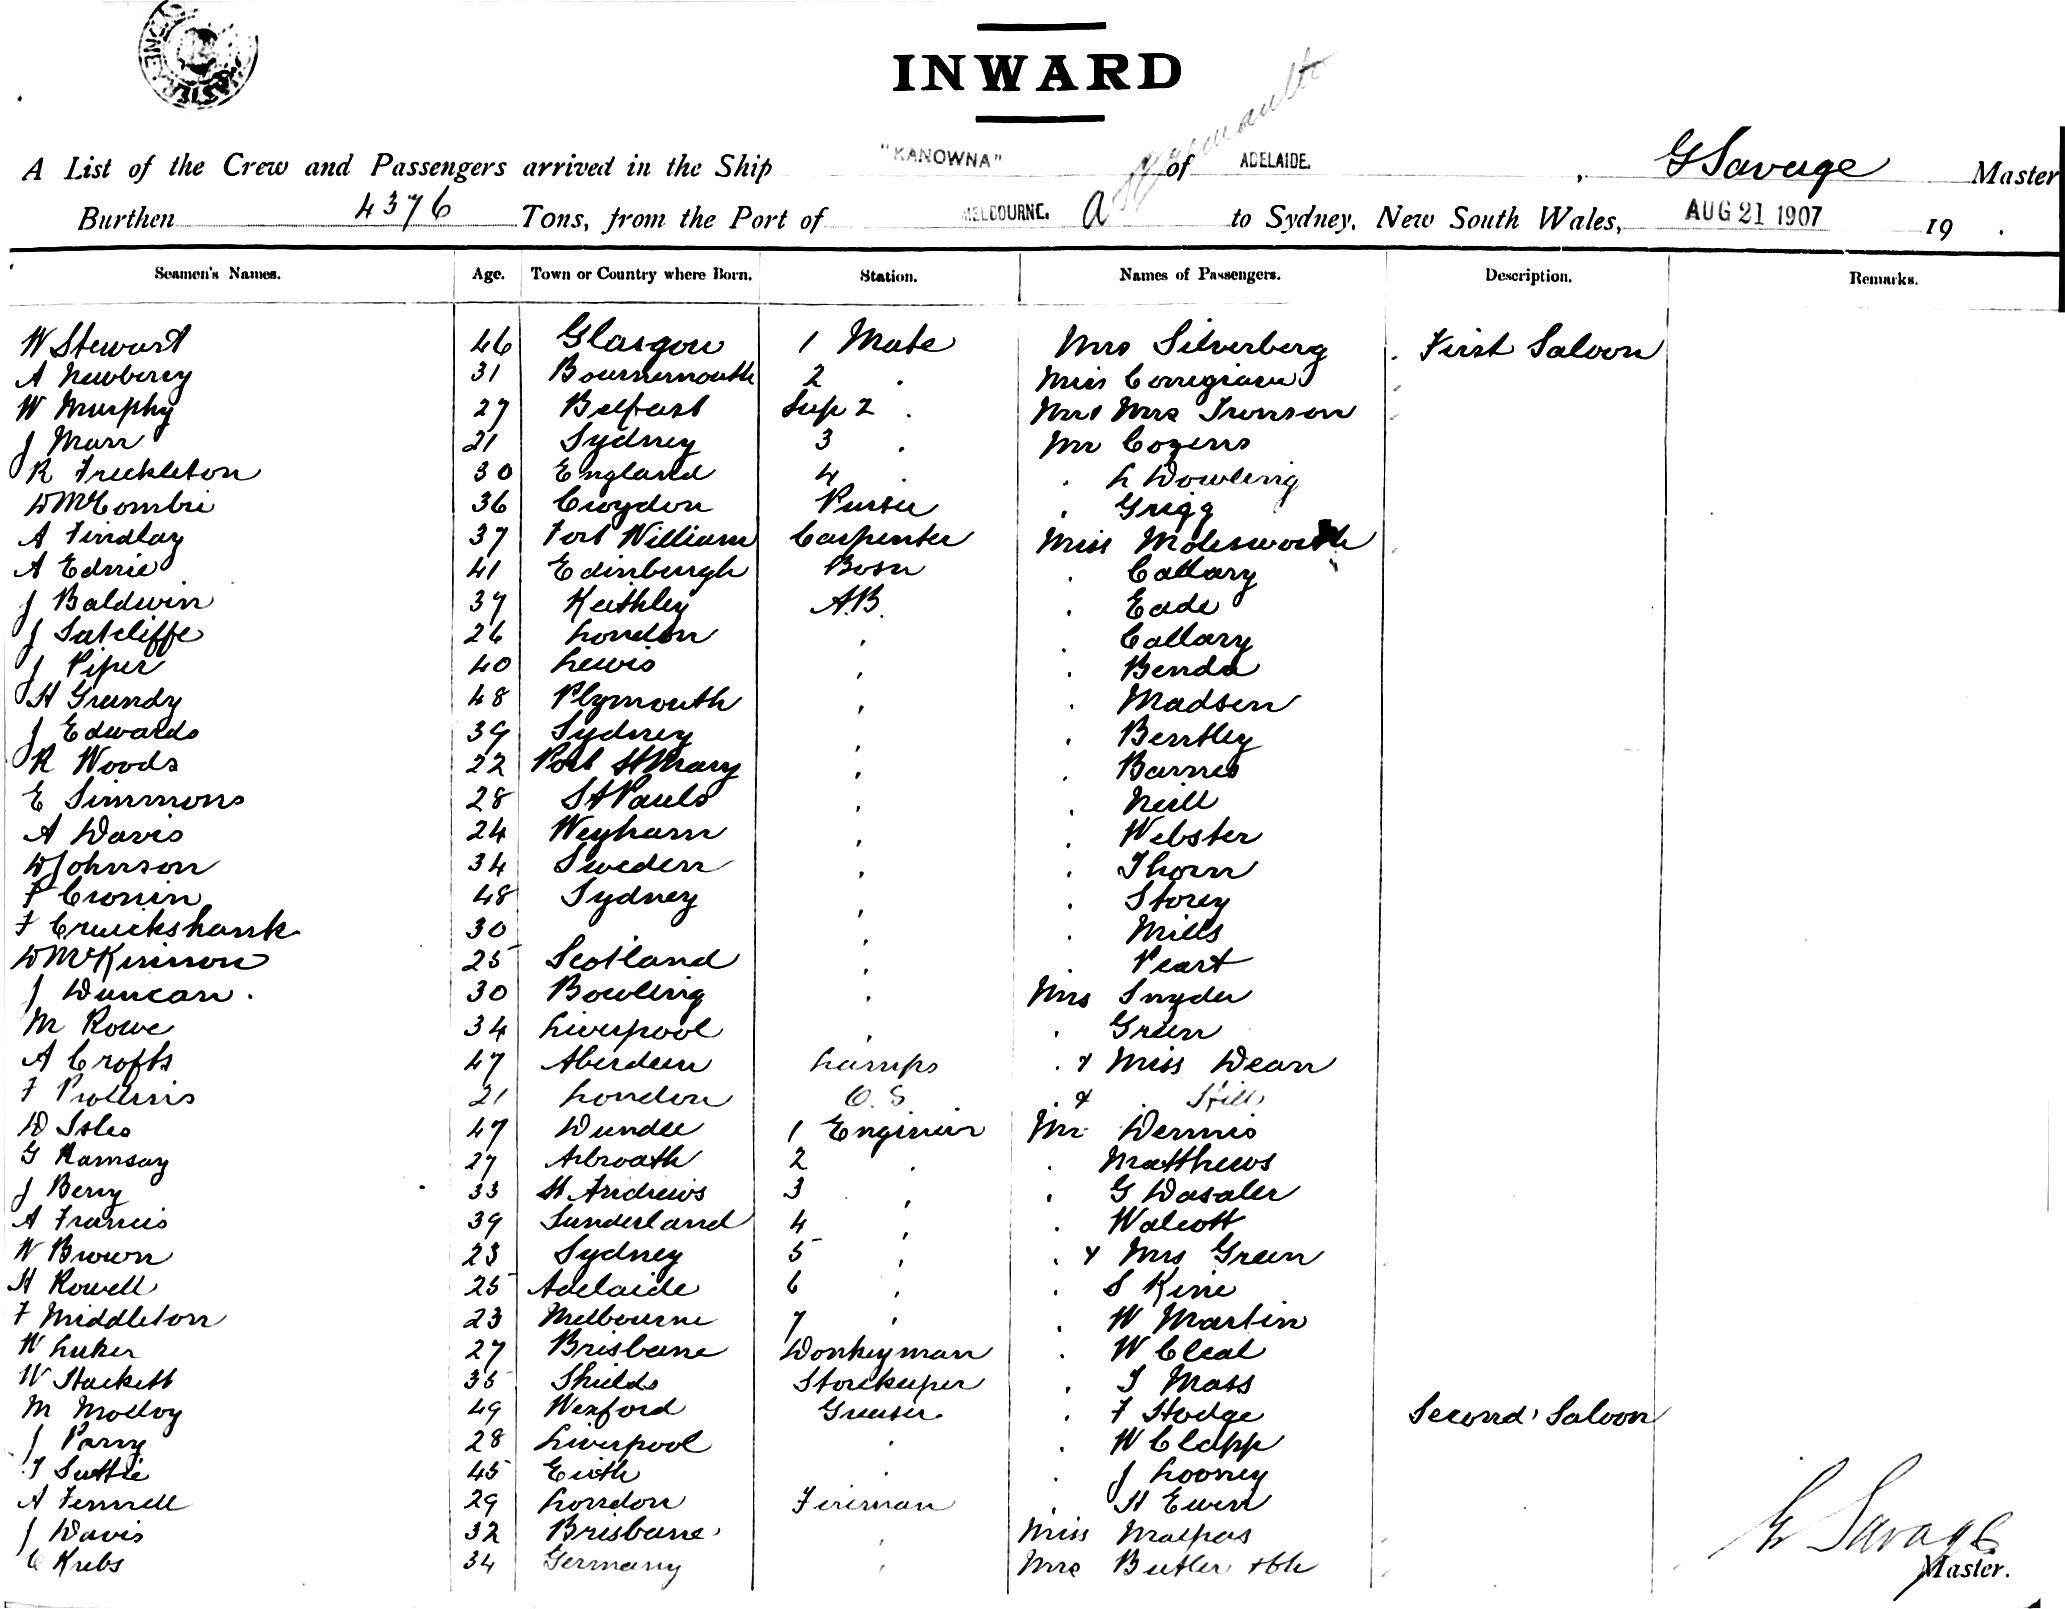 INWARD
A List of the Crew and Passengers arrived in the Ship "KANOWNA" of ADELAIDE. , G Savage Master
Burthen 4376 Tons, from the Port of MELBOURNE. to Sydney, New South Wales, AUG 21 1907 19 .
Seamen's Names. Age. Town or Country where Born. Station. Names of Passengers. Description. Remarks.
W Stewart 46 Glasgow 1 Mate Mrs Silverberg First Saloon
A Newberry 31 Bournemouth 2 Miss
W Murphy 27 Belfast Sup 2 Mr & Mrs Ironson
J Marr 21 Sydney 3 Mr Cozens
R Freckleton 30 England 4 L Dowling
D McCombie 36 Croydon Purser Grigg
A Findlay 37 Fort William Carpenter Miss Molesworth
A Edmie 41 Edinburgh Bosn Callary
J Baldwin 37 Keithley A.B. Eade
J Sutcliffe 26 London Callary
J Piper 40 Lewis Benda
H Grundy 48 Plymouth Madsen
J Edwards 39 Sydney Bentley
R Woods 22 Port St Mary Barnes
E Simmons 28 St Pauls Neill
A Davis 24 Weyham Webster
D Johnson 34 Sweden Thorn
P Cronin 48 Sydney Storey
F Cruickshank 30 Mills
D McKinnon 25 Scotland Peart
J Duncan . 30 Bowling Mrs Snyder
M Rowe 34 Liverpool Green
A Crofts 47 Aberdeen Lamps & Miss Dean
F 21 London O.S & Hill
D Isles 47 Dundee 1 Engineer Mr Dennis
G Ramsay 27 Arbroath 2 Matthews
J Berry 33 St Andrews 3 G Dasaler
A Francis 39 Sunderland 4 Walcott
W Brown 23 Sydney 5 & Mrs Green
H Rowell 25 Adelaide 6 S Kine
F Middleton 23 Melbourne 7 W Martin
W Luker 27 Brisbane Donkeyman W Cleal
W Hackett 35 Shields Storekeeper T Mass
M Molloy 49 Wexford Greaser F Hodge Second Saloon
J Parry 28 Liverpool W Clapp
T Suttie 45 Leith J Looney
A Fennell 29 London Fireman H Ewen
J Davis 32 Brisbane Miss Malpas
C Krebs 34 Germany Mrs Butler & ch
G Savage
Master.